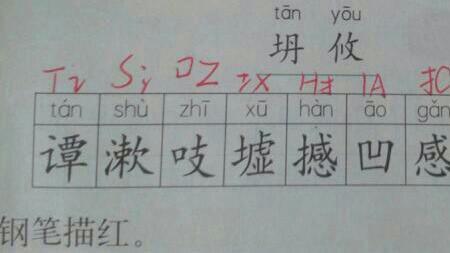 tān yōu
坍 攸
Ti Si 口Z 土X H扌 IA
tán shù zhī xū hàn āo gǎn
谭 漱 吱 墟 撼 凹 感
钢笔描红。